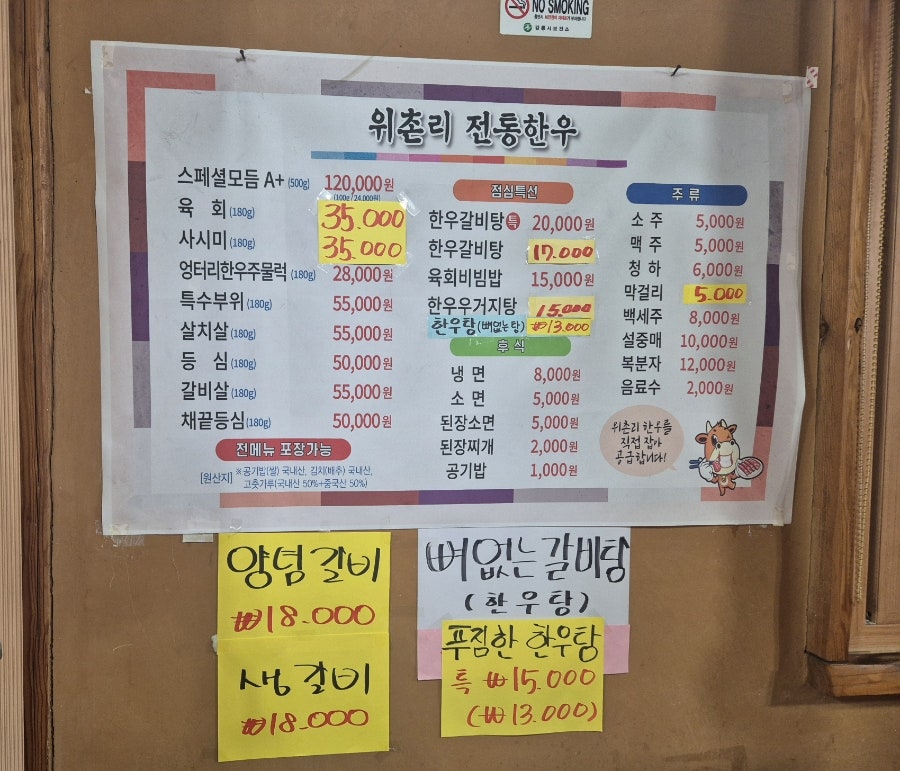 NO SMOKING
강릉시보건소
위촌리 전통한우
스페셜모듬 A+ (500g) 120,000원
(100g / 24,000원)
육 회 (180g) 35.000
사시미 (180g) 35.000
엉터리한우주물럭 (180g) 28,000원
특수부위 (180g) 55,000원
살치살 (180g) 55,000원
등 심 (180g) 50,000원
갈비살 (180g) 55,000원
채끝등심 (180g) 50,000원
전메뉴 포장가능
[원산지] ※공기밥(쌀) 국내산, 김치(배추) 국내산,
고춧가루(국내산 50%+중국산 50%)
점심특선
한우갈비탕 특 20,000원
한우갈비탕 17.000
육회비빔밥 15,000원
한우우거지탕 15.000
한우탕 (뼈없는탕) ₩13.000
후 식
냉 면 8,000원
소 면 5,000원
된장소면 5,000원
된장찌개 2,000원
공기밥 1,000원
주 류
소 주 5,000원
맥 주 5,000원
청 하 6,000원
막걸리 5.000
백세주 8,000원
설중매 10,000원
복분자 12,000원
음료수 2,000원
위촌리 한우를
직접 잡아
공급합니다!
양념갈비
₩18.000
생갈비
₩18.000
뼈없는갈비탕
(한우탕)
푸짐한 한우탕
특 ₩15.000
(₩13.000)